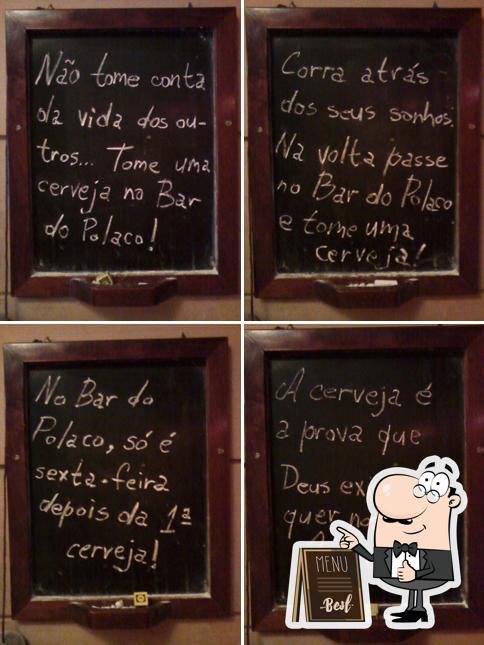 Não tome conta
da vida dos ou-
tros... Tome uma
cerveja no Bar
do Polaco!
Corra atrás
dos seus sonhos.
Na volta passe
no Bar do Polaco
e tome uma
cerveja!
No Bar do
Polaco, só é
sexta-feira
depois da 1ª
cerveja!
A cerveja é
a prova que
Deus
quer
MENU
Best